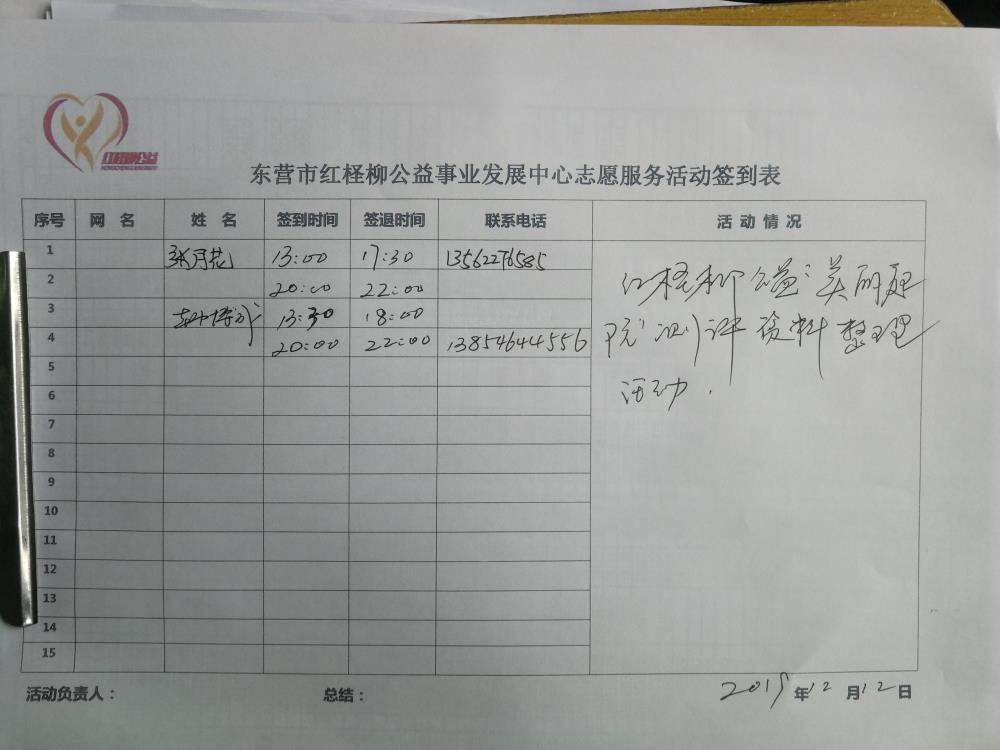 红柽柳公益
东营市红柽柳公益事业发展中心志愿服务活动签到表
序号 网 名 姓 名 签到时间 签退时间 联系电话 活 动 情 况
1 张月花 13:00 17:30 13562276585
2 20:00 22:00
3 13:30 18:00
4 20:00 22:00 13854644556
红柽柳公益“美丽庭
院”测评资料整理
活动.
5
6
7
8
9
10
11
12
13
14
15
活动负责人： 总结： 2019年12月12日